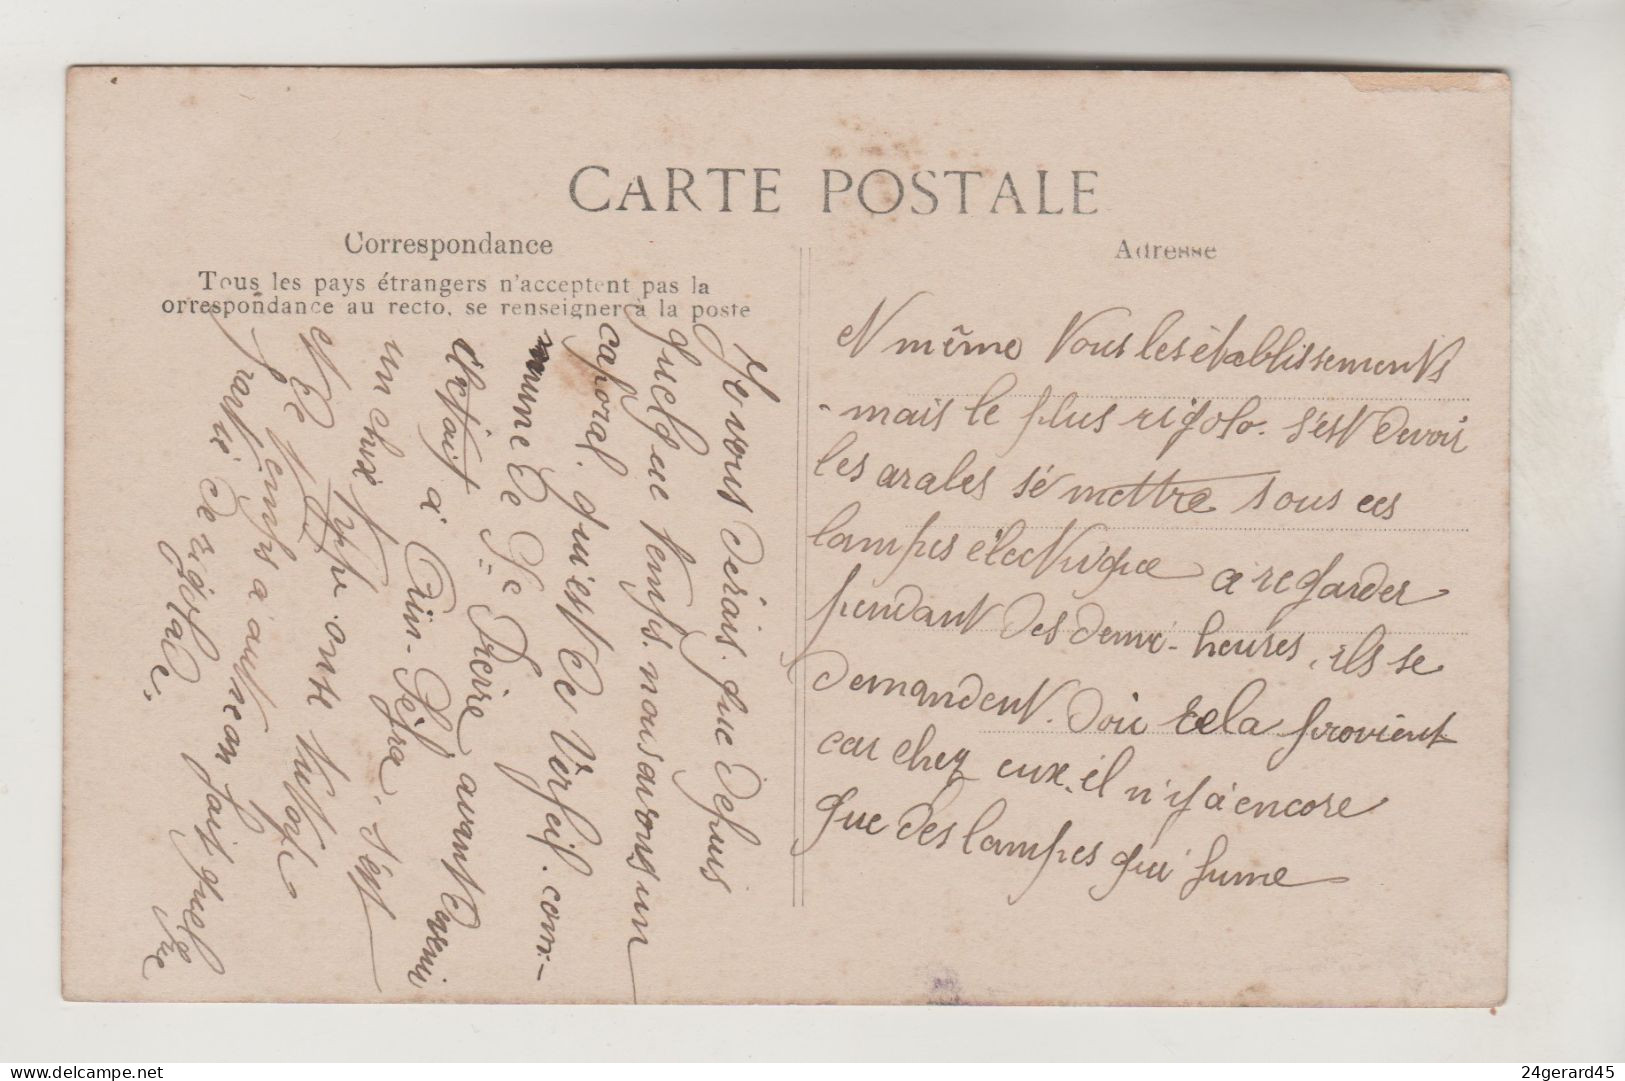 CARTE POSTALE
Correspondance
Tous les pays étrangers n'acceptent pas la
orrespondance au recto, se renseigner à la poste
Adresse
et même tous les établissements
mais le plus rigolo. s'est devoir
les arales sé mettre sous ces
lampes électrique a regarder
pendant des demi-heures, ils se
demandent. doù cela provient
car chez eux. il n'y a encore
que des lampes qui fume
Je vous dérais. que depuis
quelque temps. nous avons un
caporal. qui est de Verfeil. com-
mune de St Pierre avant de venir
il était à Aïn-Séfra. s'est
un chix type on se
et de temps
fait quel que
de rigolade.
24gerard45
delcampe.net